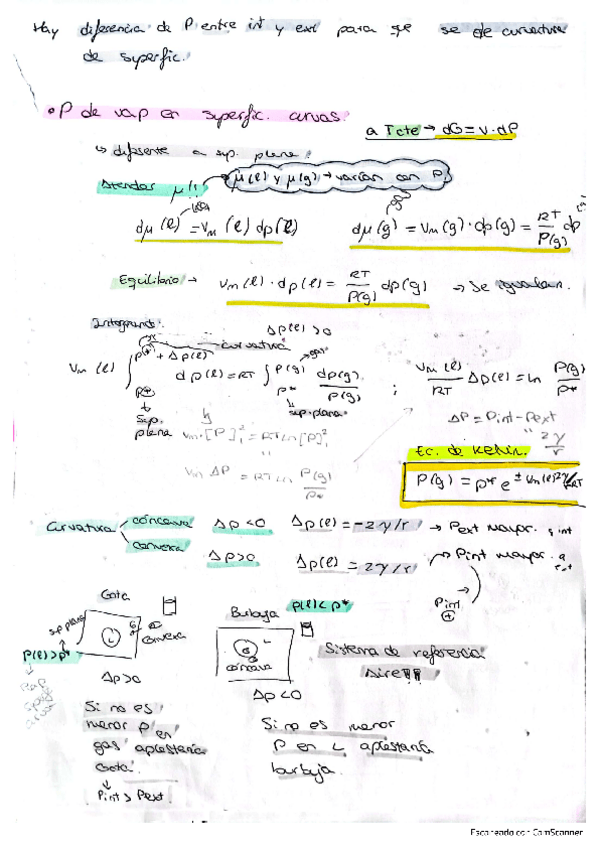 Hay diferencia de P entre int y ext para que se de curvatura
de superfic.
• P de vap en superfic. curvas.
a T cte → dG = V·dP
↳ diferente a sup. plana!
Atender μ!! → μ(l) y μ(g) → varían con P.
dμ(l) = Vm(l) dp(l)
dμ(g) = Vm(g)·dp(g) = RT/P(g) dp
Equilibrio → Vm(l)·dp(l) = RT/P(g) dp(g) → Se igualan.
Integrando: Δp(l) > 0
curvatura
Vm(l) ∫ p* + Δp(l) dp(l) = RT ∫ p(g) p* dp(g)/P(g) ; Vm(l)/RT Δp(l) = ln P(g)/P*
Sup. plana
sup. plana
Vm·[P]₁² = RT ln[P]₁²
ΔP = Pint - Pext
" 2γ/r
Vm ΔP = RT ln P(g)/P*
Ec. de Kelvin.
P(g) = p* e^± Vm(l)2γ/rRT
Curvatura cóncava Δp < 0 Δp(l) = -2γ/r → Pext mayor. q int
convexa Δp > 0 Δp(l) = 2γ/r → Pint mayor. a ext
Pint
Gota
Burbuja P(l) < p*
sup plana
L
G
convexa
G
L
cóncava
Sistema de referencia
Aire!!
P(l) > p*
Δp > 0
Δp < 0
Si no es
menor P en
gas aplastaría
Gota.
↓
Pint > Pext.
Si no es menor
P en L aplastaría
burbuja.
Escaneado con CamScanner